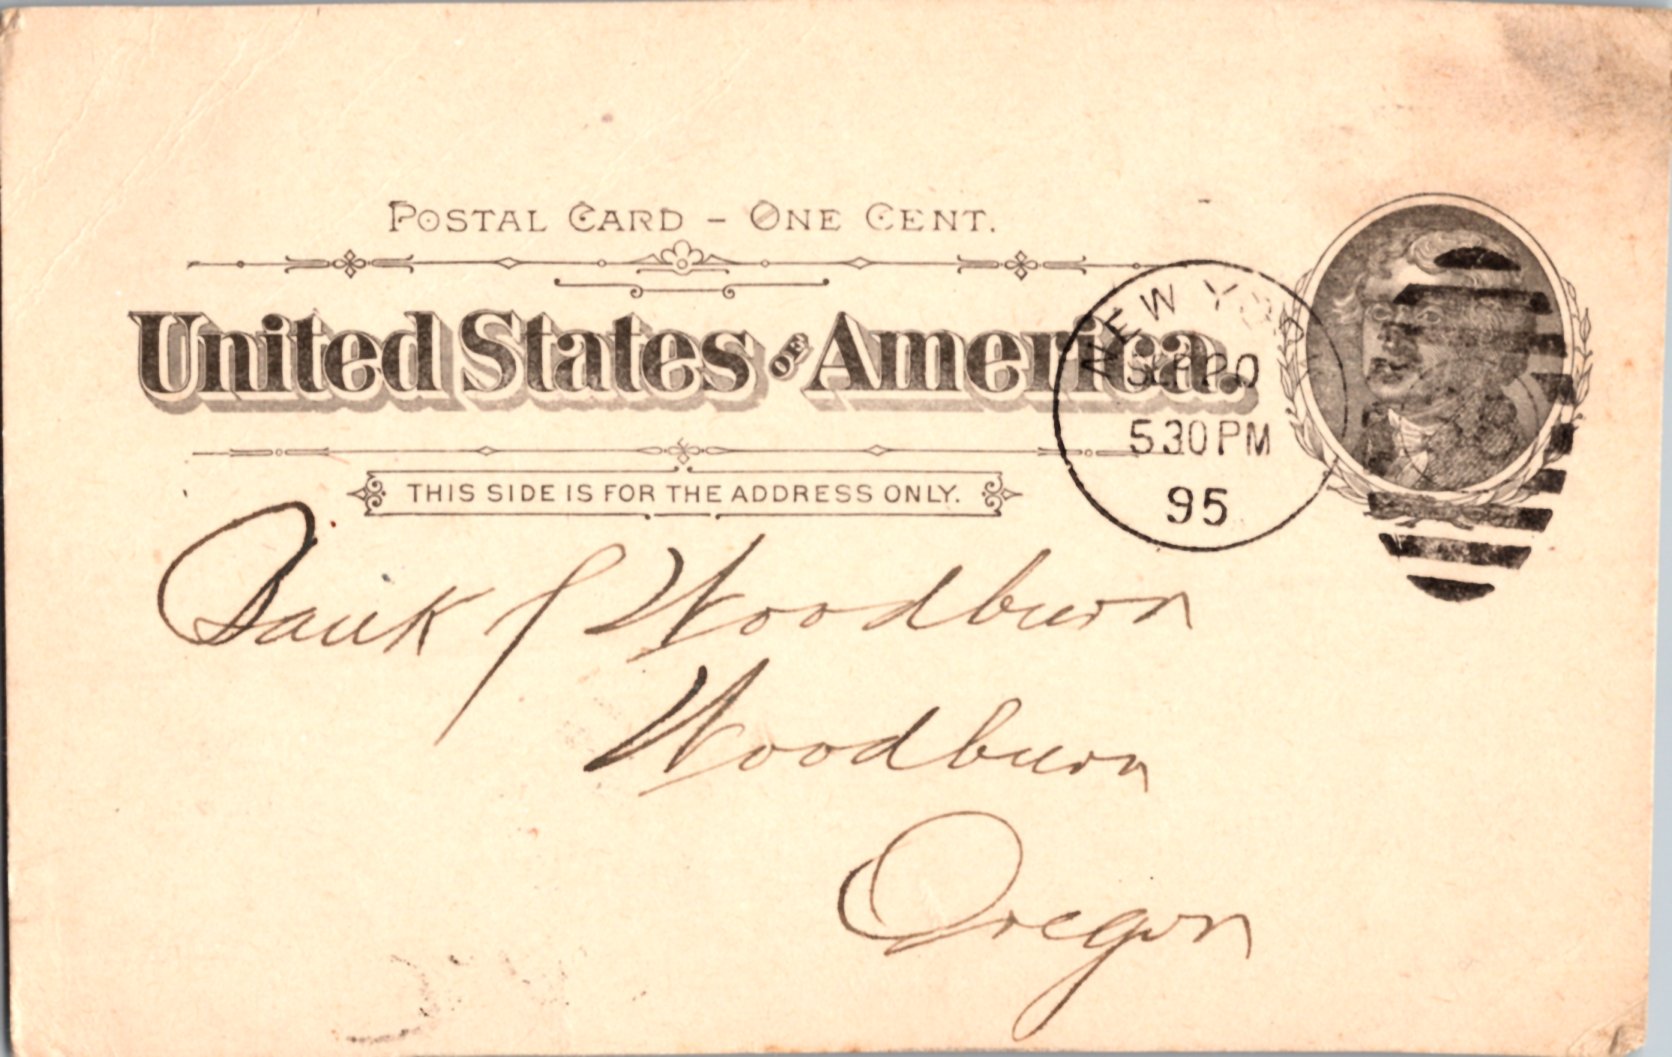 POSTAL CARD – ONE CENT.
United States OF America.
NEW YORK
SEP 20
530PM
95
THIS SIDE IS FOR THE ADDRESS ONLY.
Bank of Woodburn
Woodburn
Oregon